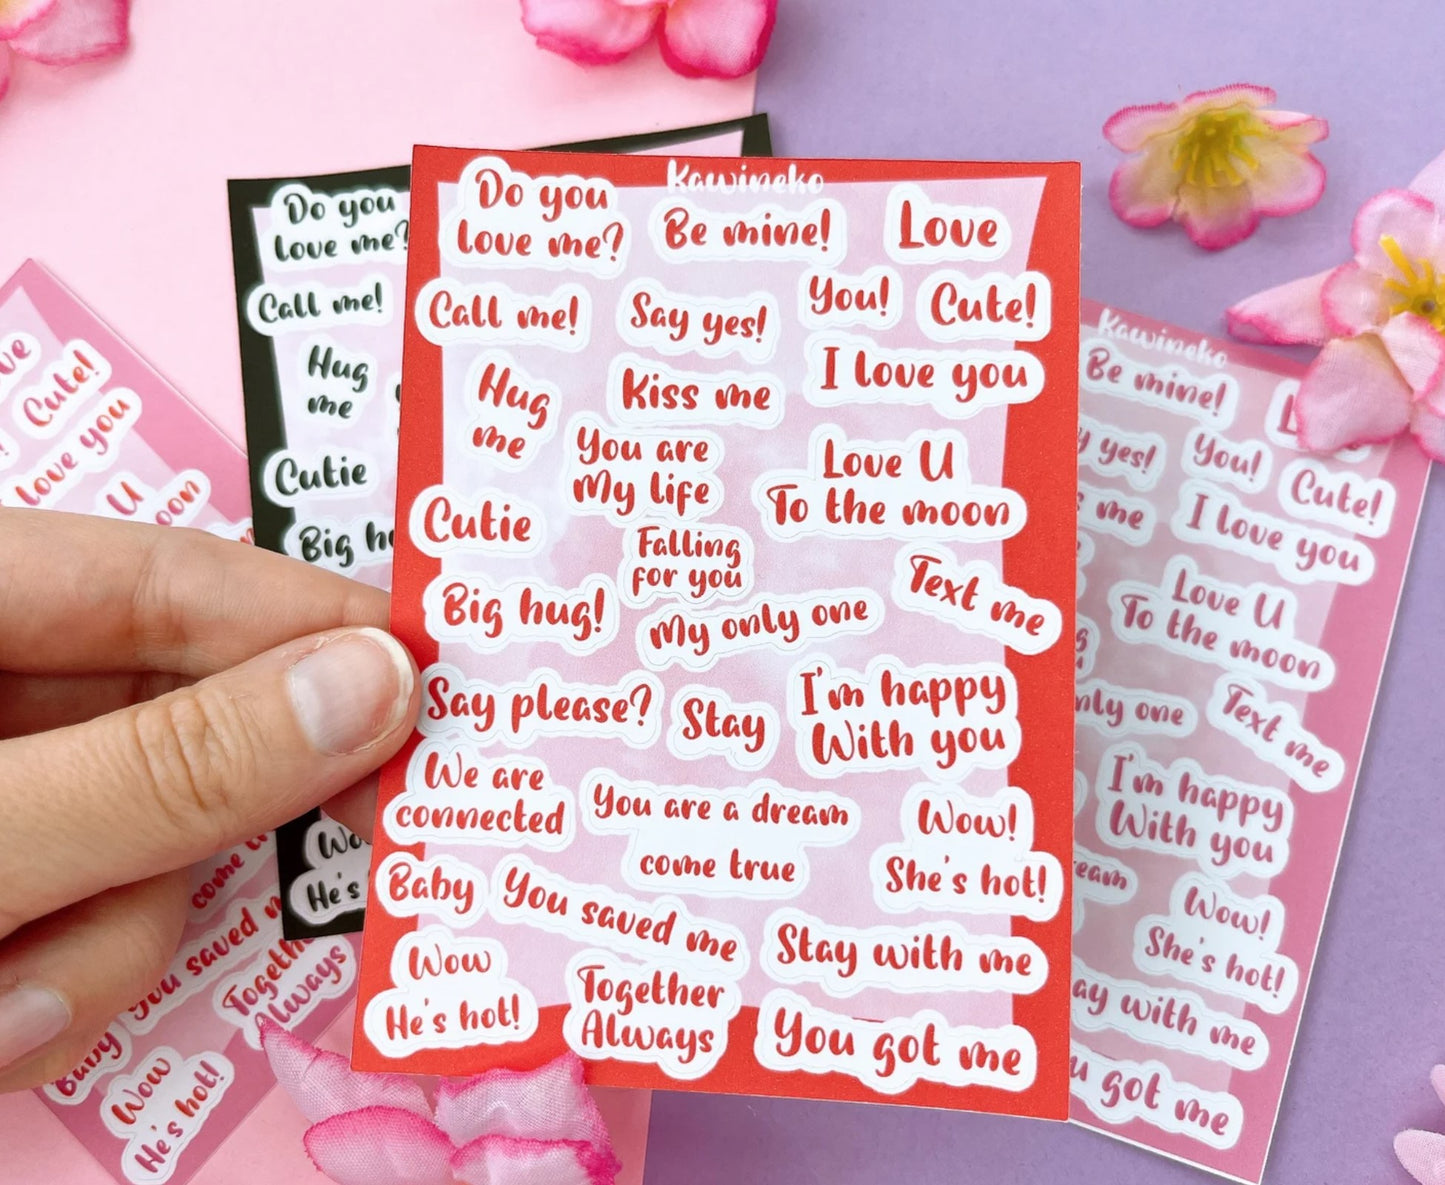 Kawineko
Do you
love me?
Be mine!
Love
Call me!
Say yes!
You!
Cute!
Hug
me
Kiss me
I love you
You are
My life
Love U
To the moon
Cutie
Falling
for you
Text me
Big hug!
My only one
Say please?
Stay
I'm happy
With you
We are
connected
You are a dream
come true
Wow!
She's hot!
Baby
You saved me
Stay with me
Wow
He's hot!
Together
Always
You got me
Do you
love me?
Call me!
Hug
me
Cutie
Big
He's
Cute!
love you
U
moon
come
You saved
Together
Always
Baby
Wow
He's hot!
Kawineko
Be mine!
yes!
You!
Cute!
me
I love you
Love U
To the moon
only one
Text me
I'm happy
With you
Wow!
She's hot!
with me
got me